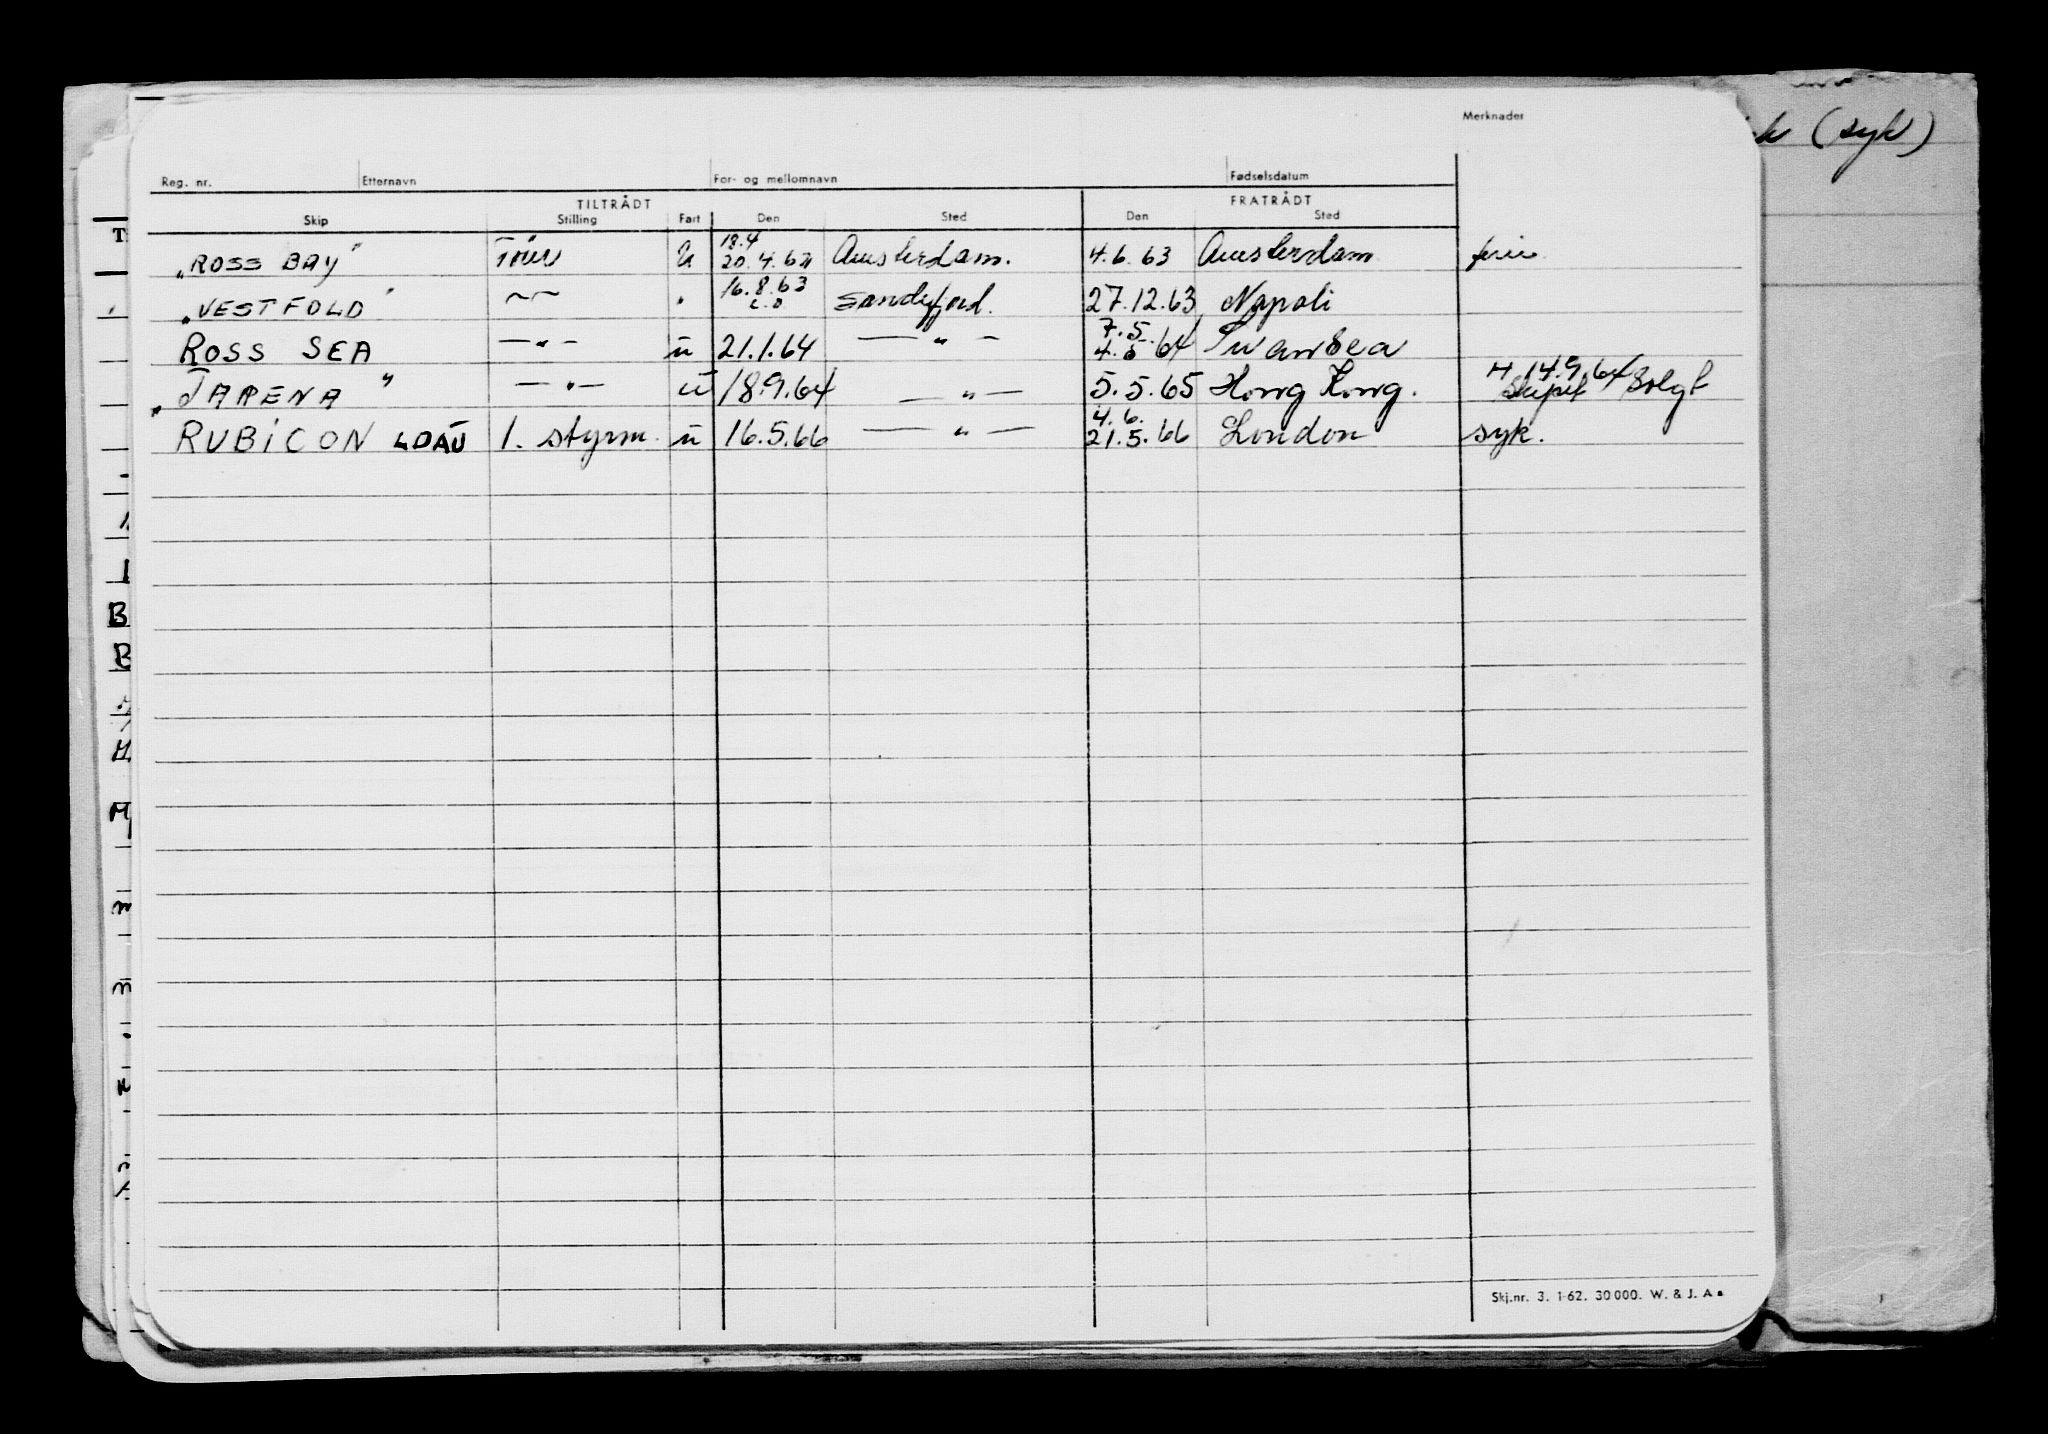 Merknader
k (syk)
Reg. nr. Etternavn For- og mellomnavn Fødselsdatum
TILTRÅDT FRATRÅDT
Skip Stilling Fart Den Sted Den Sted
18.4
"ROSS BAY" u 20.4.62 Amsterdam. 4.6.63 Amsterdam ferie
16.8.63
"VESTFOLD" " Sandefjord. 27.12.63 Napoli
7.5
ROSS SEA —"— u 21.1.64 —"— 4.5.64 Swansea
H 14.9.64
"TARENA" —"— u 18.9.64 —"— 5.5.65 Hong Kong. Skipet solgt
4.6.
RUBICON 1. styrm. u 16.5.66 —"— 21.5.66 London syk.
T
B
B
M
m
m
Skj.nr. 3. 1-62. 30 000. W. & J. A